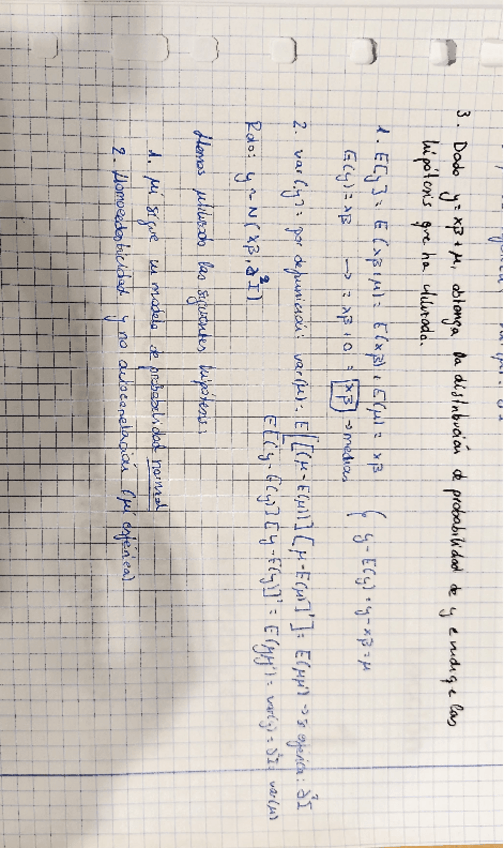 3. Dado y = xβ + μ, obtenga la distribución de probabilidad de y e indique las
hipótesis que ha utilizado.
1. E[y] = E(xβ+μ) = E(xβ) + E(μ) = xβ
E(y) = xβ → = xβ + 0 = xβ → media
{ y - E(y) = y - xβ = μ
2. var(y) = por definición: var(μ) = E[[μ - E(μ)] [μ - E(μ)]'] = E(μμ') → si esférica: ∂²I
E[[y - E(y)] [y - E(y)]'] = E(μμ') = var(y) = ∂²I = var(μ)
Rdo: y ~ N(xβ, ∂²I)
Hemos utilizado las siguientes hipótesis:
1. μ sigue un modelo de probabilidad normal
2. Homocedasticidad y no autocorrelación (μ esférica)